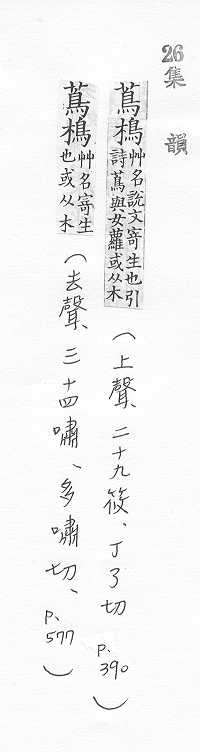 26 集韻
蔦樢艸名說文寄生也引詩蔦與女蘿或从木(上聲、二十九筱、丁了切 p.390)
蔦樢艸名寄生也或从木(去聲、三十四嘯、多嘯切、p.577)